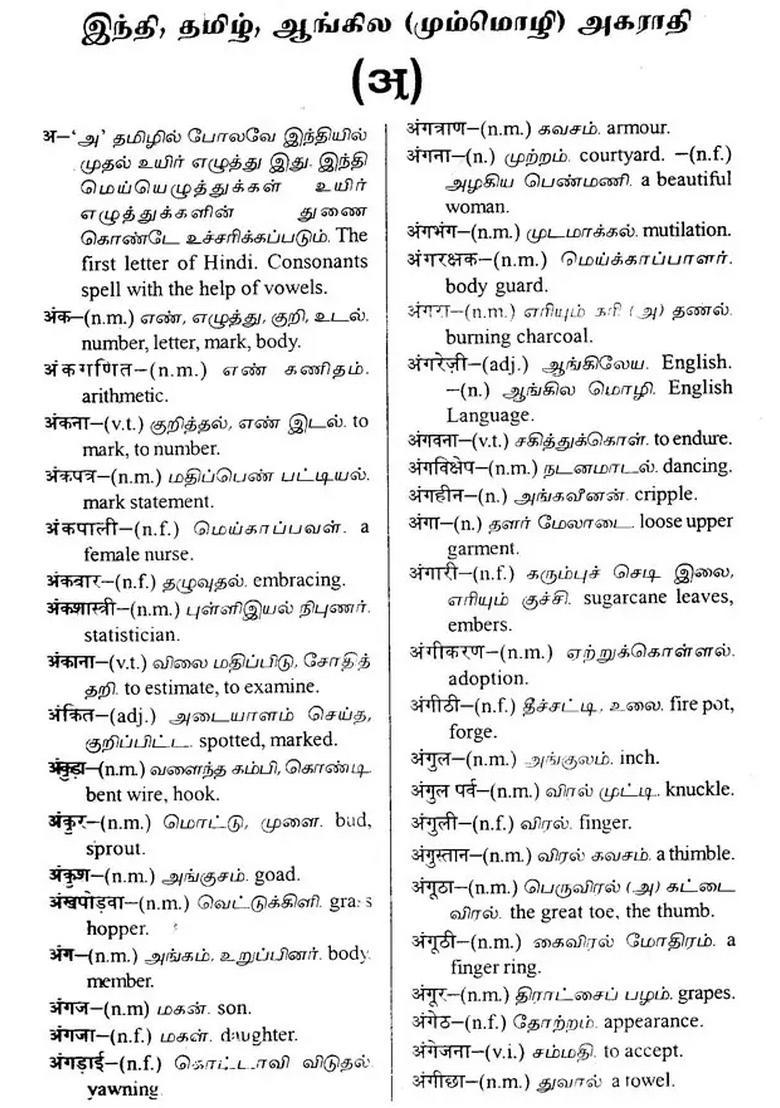 இந்தி, தமிழ், ஆங்கில (மும்மொழி) அகராதி
(अ)
अ–‘அ’ தமிழில் போலவே இந்தியில்
முதல் உயிர் எழுத்து இது. இந்தி
மெய்யெழுத்துக்கள் உயிர்
எழுத்துக்களின் துணை
கொண்டே உச்சரிக்கப்படும். The
first letter of Hindi. Consonants
spell with the help of vowels.
अंक–(n.m.) எண், எழுத்து, குறி, உடல்.
number, letter, mark, body.
अंकगणित–(n.m.) எண் கணிதம்.
arithmetic.
अंकना–(v.t.) குறித்தல், எண் இடல். to
mark, to number.
अंकपत्र–(n.m.) மதிப்பெண் பட்டியல்.
mark statement.
अंकपाली–(n.f.) மெய்காப்பவள். a
female nurse.
अंकवार–(n.f.) தழுவுதல். embracing.
अंकशास्त्री–(n.m.) புள்ளிஇயல் நிபுணர்.
statistician.
अंकाना–(v.t.) விலை மதிப்பிடு, சோதித்
தறி. to estimate, to examine.
अंकित–(adj.) அடையாளம் செய்த,
குறிப்பிட்ட. spotted, marked.
अंकुड़ा–(n.m.) வளைந்த கம்பி, கொண்டி.
bent wire, hook.
अंकुर–(n.m.) மொட்டு, முளை. bud,
sprout.
अंकुश–(n.m.) அங்குசம். goad.
अंखपोड़वा–(n.m.) வெட்டுக்கிளி. grass
hopper.
अंग–(n.m.) அங்கம், உறுப்பினர். body
member.
अंगज–(n.m) மகன். son.
अंगजा–(n.f.) மகள். daughter.
अंगड़ाई–(n.f.) கொட்டாவி விடுதல்.
yawning.
अंगत्राण–(n.m.) கவசம். armour.
अंगना–(n.) முற்றம். courtyard. –(n.f.)
அழகிய பெண்மணி. a beautiful
woman.
अंगभंग–(n.m.) முடமாக்கல். mutilation.
अंगरक्षक–(n.m.) மெய்க்காப்பாளர்.
body guard.
अंगरा–(n.m.) எரியும் கரி (அ) தணல்.
burning charcoal.
अंगरेज़ी–(adj.) ஆங்கிலேய. English.
–(n.) ஆங்கில மொழி. English
Language.
अंगवना–(v.t.) சகித்துக்கொள். to endure.
अंगविक्षेप–(n.m.) நடனமாடல். dancing.
अंगहीन–(n.) அங்கவீனன். cripple.
अंगा–(n.) தளர் மேலாடை. loose upper
garment.
अंगारी–(n.f.) கரும்புச் செடி இலை,
எரியும் குச்சி. sugarcane leaves,
embers.
अंगीकरण–(n.m.) ஏற்றுக்கொள்ளல்.
adoption.
अंगीठी–(n.f.) தீச்சட்டி, உலை. fire pot,
forge.
अंगुल–(n.m.) அங்குலம். inch.
अंगुल पर्व–(n.m.) விரல் முட்டி. knuckle.
अंगुली–(n.f.) விரல். finger.
अंगुस्तान–(n.m.) விரல் கவசம். a thimble.
अंगूठा–(n.m.) பெருவிரல் (அ) கட்டை
விரல். the great toe, the thumb.
अंगूठी–(n.m.) கைவிரல் மோதிரம். a
finger ring.
अंगूर–(n.m.) திராட்சைப் பழம். grapes.
अंगेठ–(n.f.) தோற்றம். appearance.
अंगेजना–(v.i.) சம்மதி. to accept.
अंगीछा–(n.m.) துவால் a towel.